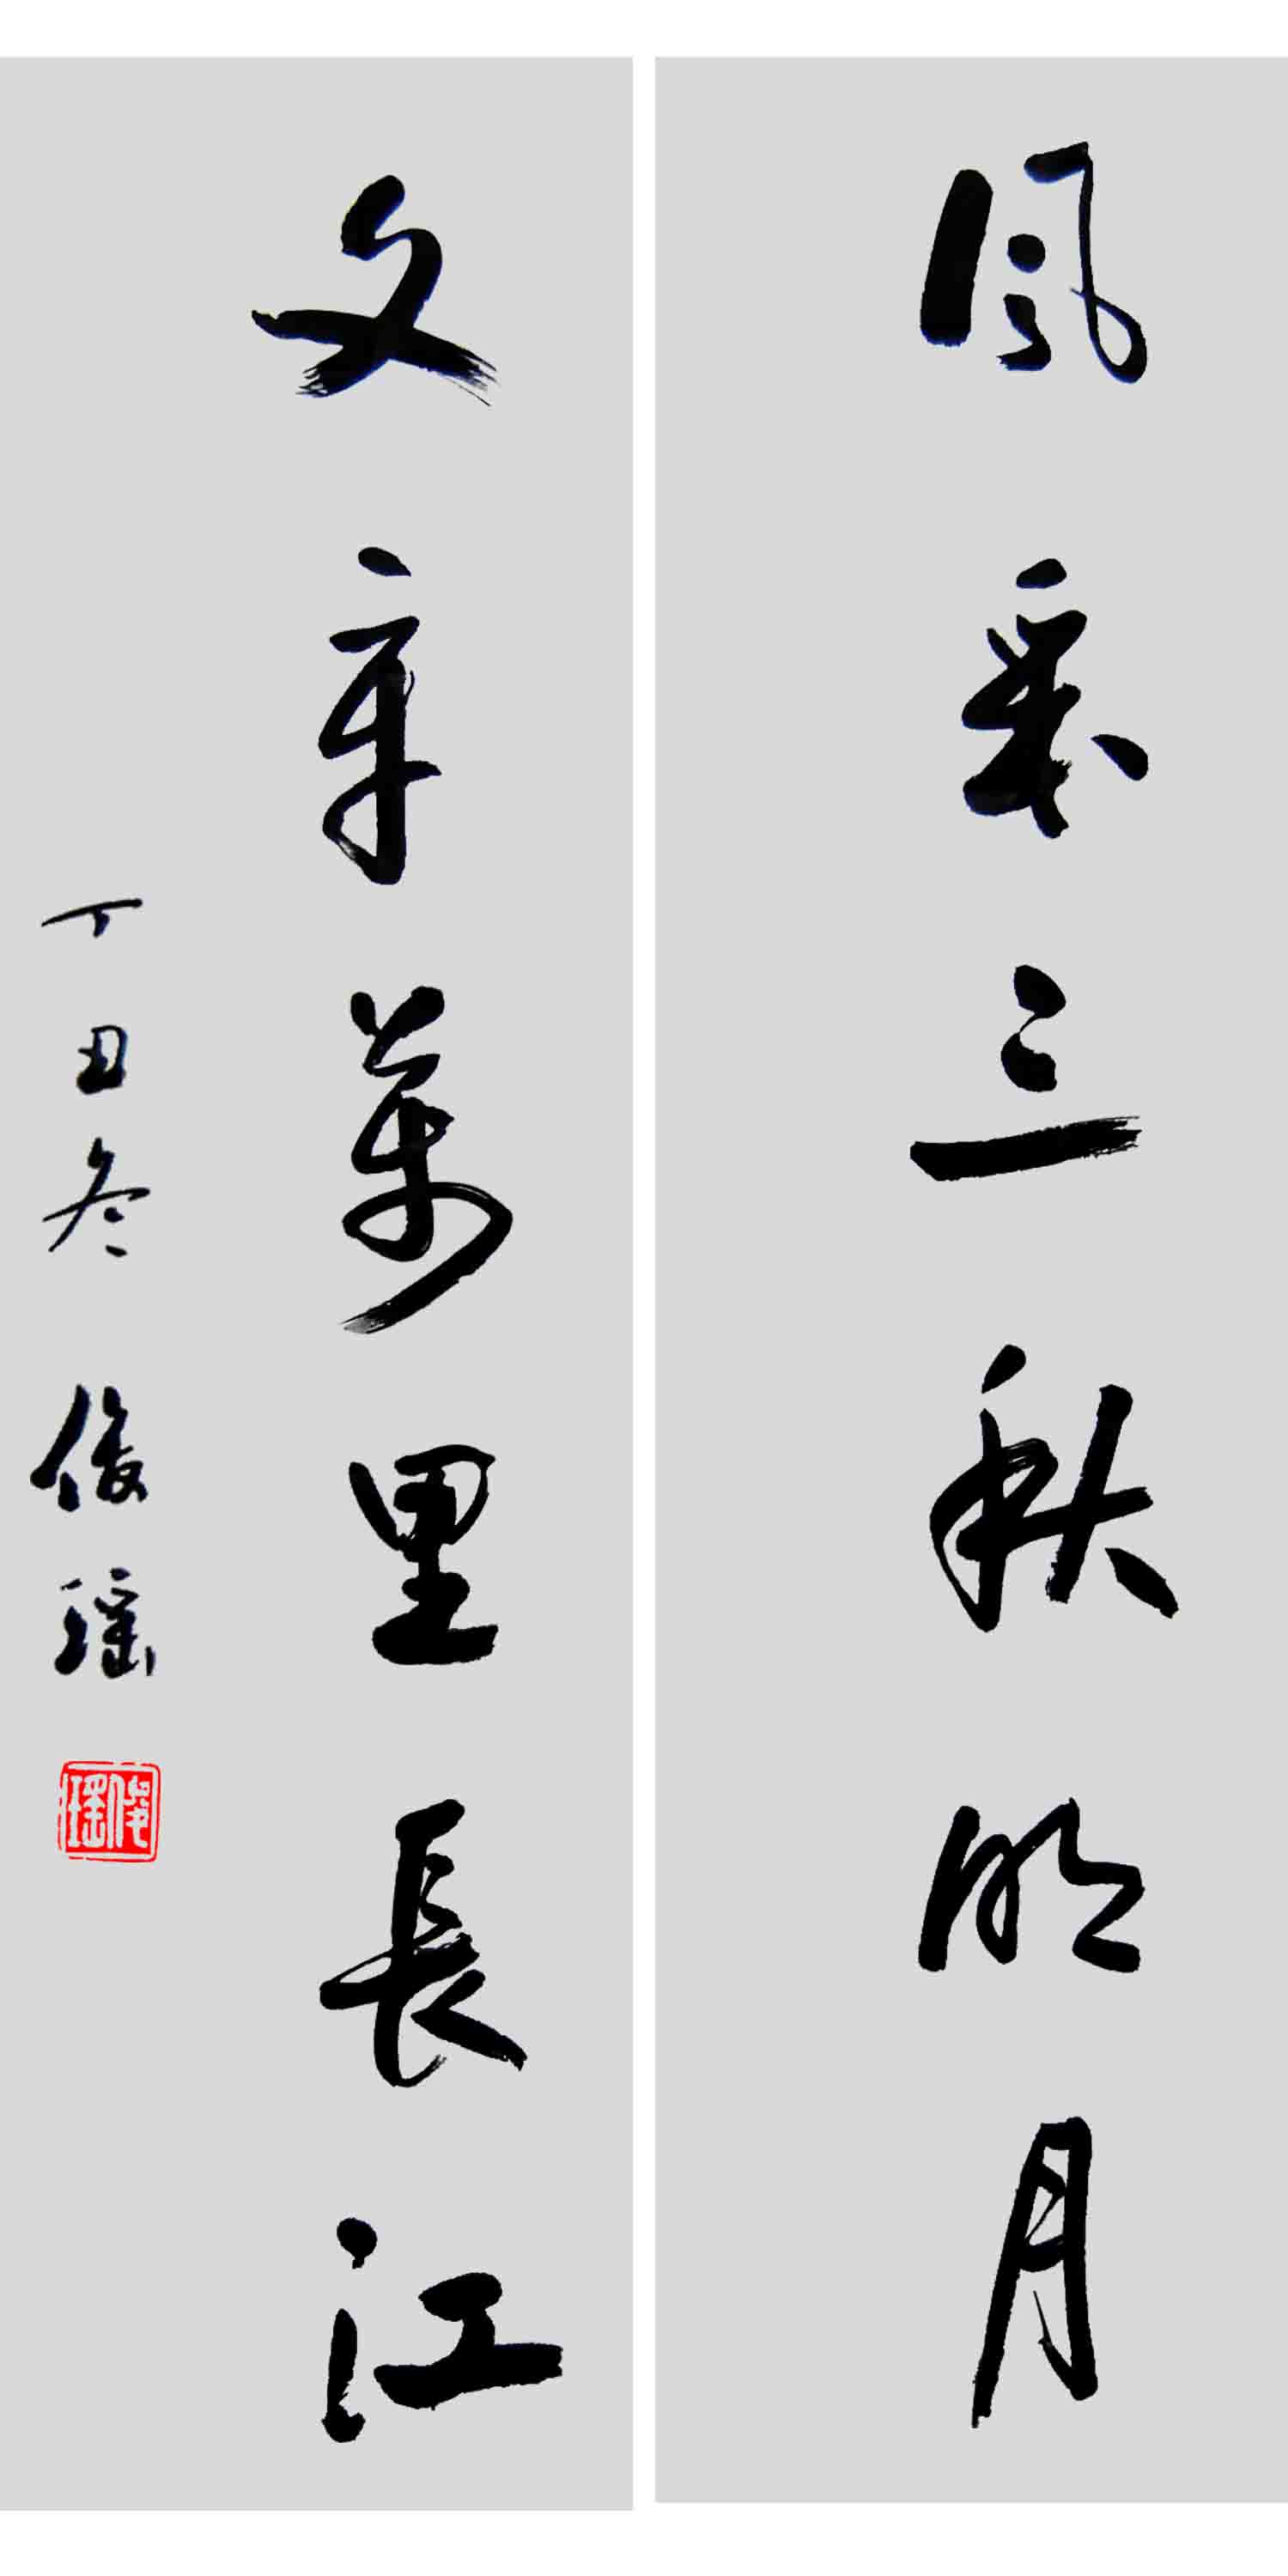 風采三秋明月
文章萬里長江
丁丑冬 俊瑶
俊瑶